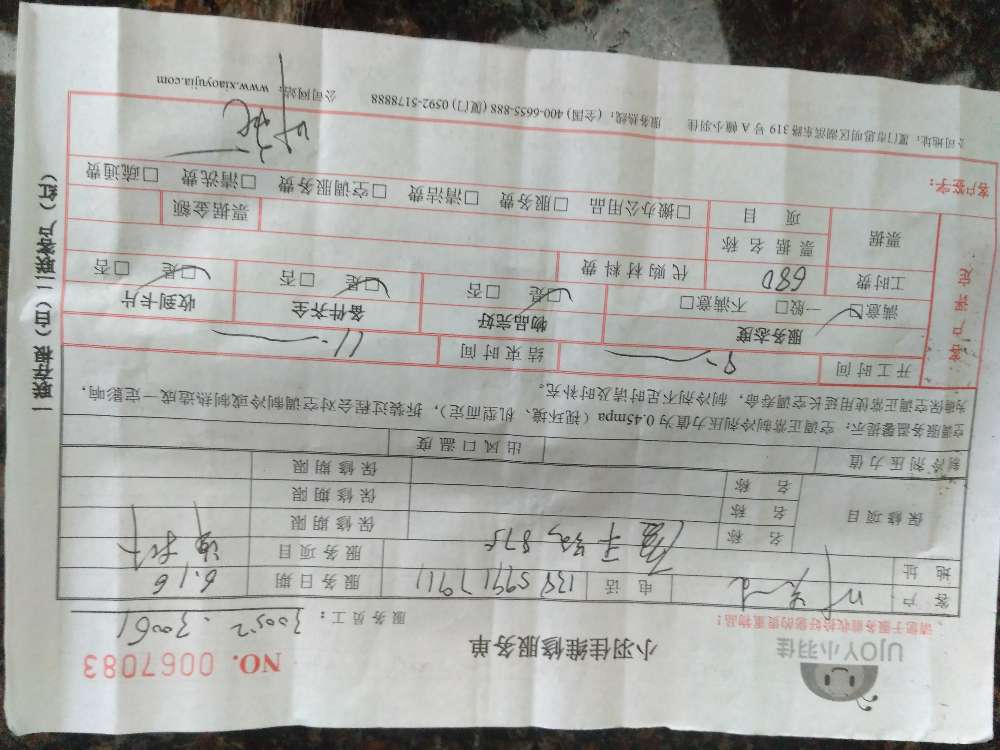 UJOY小羽佳
小羽佳维修服务单
NO. 0067083
请您于服务前收拾好您的贵重物品!
服务员工: 30052. 30061
客户 叶 电话 13859917911 服务日期 6.16
地址 875 服务项目
保修项目 名称 保修期限
名称 保修期限
名称 保修期限
制冷剂压力值 出风口温度
空调服务温馨提醒:空调正常制冷剂压力值为0.45mpa(视环境、机型而定),拆装过程会对空调制冷或制热造成一定影响,
为确保空调正常使用延长空调寿命,制冷剂不足时请及时补充。
客户评定
开工时间 9 结束时间 11
服务态度 物品完好 备件齐全 收到卡片
满意□ 一般□ 不满意□ □是 □否 □是 □否 □是 □否
工时费 680 代购材料费
票据 票据名称 票据金额
项目 □搬办公用品 □服务费 □清洁费 □空调服务费 □清洗费 □疏通费
客户签字: 叶
公司地址:厦门市思明区湖滨东路319号A幢小羽佳 服务热线:(全国) 400-6655-888 (厦门) 0592-5178888 公司网站:www.xiaoyujia.com
一联存根(白)二联客户(红)